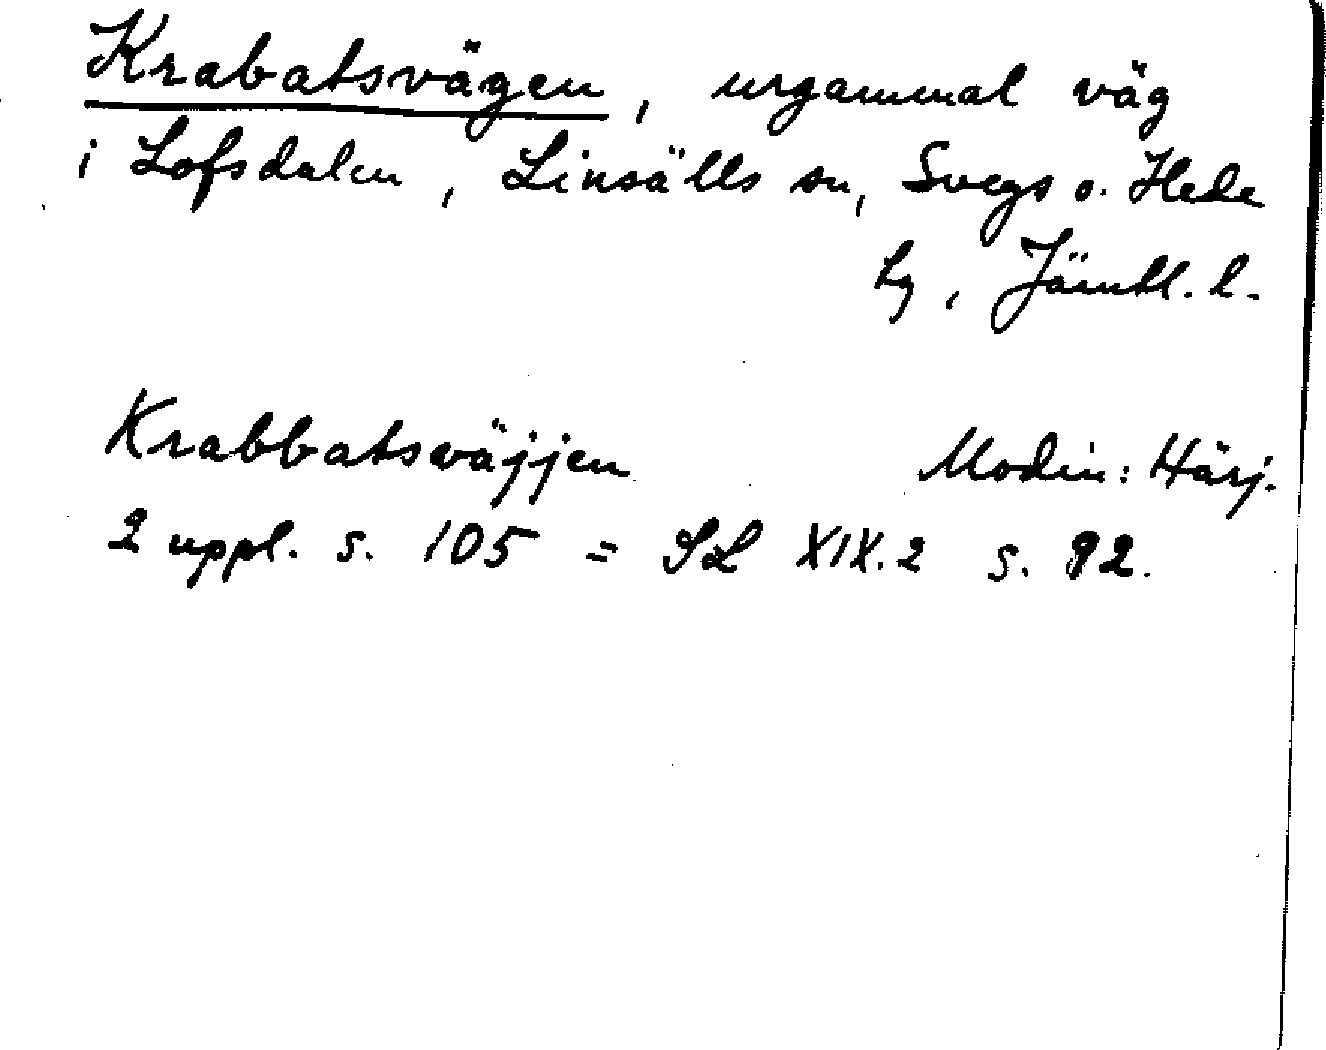 Krabatsvägen, urgammal väg
i Lofsdalen, Linsälls sn, Svegs o. Hede
tg, Jämtl. l.
Krabbatsväjjen Modin: Härj.
2 uppl. s. 105 = SL XIX.2 s. 92.